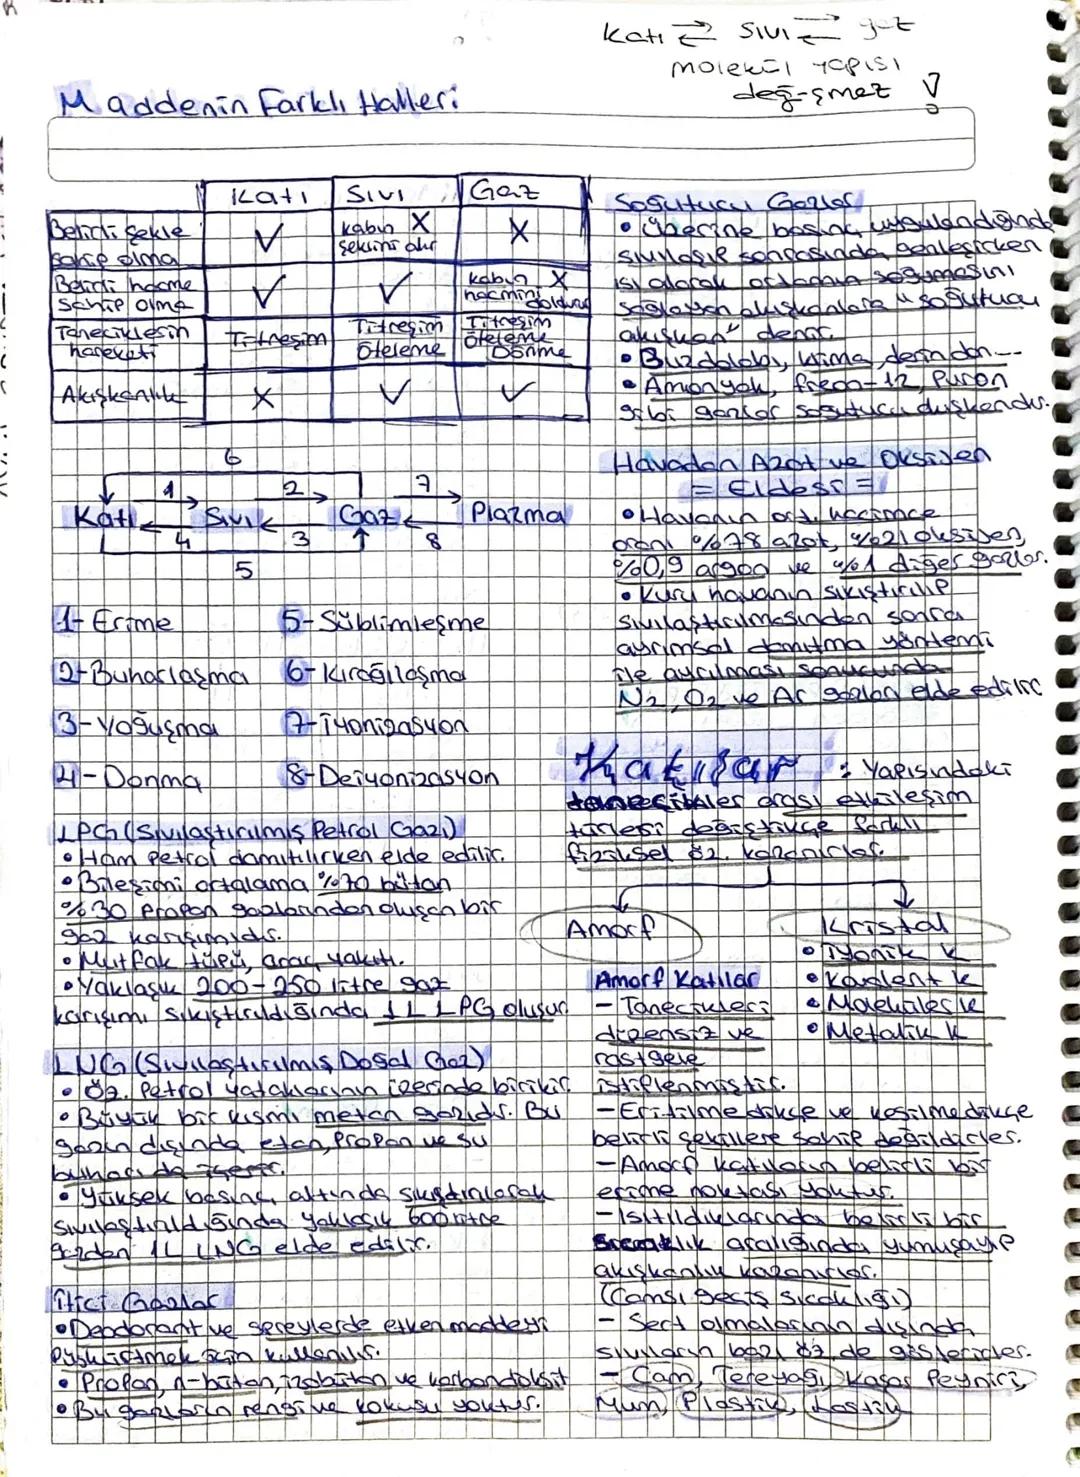 Katı ⇄ Sıvı ⇄ gaz
molekül yapısı
değişmez !
Maddenin Farklı Halleri
Katı Sıvı Gaz
Belirli şekle sahip olma ✓ kabın X şeklini alır X
Belirli hacme sahip olma ✓ ✓ kabın X hacmini doldurur
Taneciklerin hareketi Titreşim Titreşim Öteleme Titreşim Öteleme Dönme
Akışkanlık X ✓ ✓
6
1 2 7
Katı Sıvı Gaz Plazma
4 3 8
5
1- Erime 5- Süblimleşme
2- Buharlaşma 6- Kırağılaşma
3- Yoğuşma 7- İyonizasyon
4- Donma 8- Deiyonizasyon
LPG (Sıvılaştırılmış Petrol Gazı)
• Ham petrol damıtılırken elde edilir.
• Bileşimi ortalama %70 bütan
%30 propan gazlarından oluşan bir
gaz karışımıdır.
• Mutfak tüpü, araç yakıtı.
• Yaklaşık 200-250 litre gaz
karışımı sıkıştırıldığında 1L LPG oluşur.
LNG (Sıvılaştırılmış Doğal Gaz)
• Öz. Petrol yataklarının üzerinde birikir.
• Büyük bir kısmı metan gazıdır. Bu
gazın dışında etan, propan ve su
buharı da içerir.
• Yüksek basınç altında sıkıştırılarak
sıvılaştırıldığında yaklaşık 600 litre
gazdan 1L LNG elde edilir.
İtici Gazlar
• Deodorant ve spreylerde etken maddeyi
püskürtmek için kullanılır.
• Propan, n-bütan, izobütan ve karbondioksit
• Bu gazların rengi ve kokusu yoktur.
Soğutucu Gazlar
• Üzerine basınç uygulandığında
sıvılaşıp sonrasında genleşirken
ısı alarak ortamın soğumasını
sağlayan akışkanlara "soğutucu
akışkan" denir.
• Buzdolabı, klima, derin don...
• Amonyak, freon-12, Puron
gibi gazlar soğutucu akışkandır.
Havadan Azot ve Oksijen
= Eldesi =
• Havanın ort. hacimce
oranı %78 azot, %21 oksijen,
%0,9 argon ve %1 diğer gazlar.
• Kuru havanın sıkıştırılıp
sıvılaştırılmasından sonra
ayrımsal damıtma yöntemi
ile ayrılması sonucunda
N2, O2 ve Ar gazları elde edilir
Katılar : Yapısındaki
tanecikler arası etkileşim
türleri değiştikçe farklı
fiziksel öz. kazanırlar.
Amorf Kristal
• İyonik k
• Kovalent k
• Moleküler k
• Metalik k
Amorf Katılar
- Tanecikleri
düzensiz ve
rastgele
istiflenmiştir.
- Eritilmedikçe ve kesilmedikçe
belirli şekillere sahip değildirler.
- Amorf katıların belirli bir
erime noktası yoktur.
- Isıtıldıklarında belirli bir
sıcaklık aralığında yumuşayıp
akışkanlık kazanırlar.
(Camsı geçiş sıcaklığı)
- Sert olmalarının dışında
sıvıların bazı öz. de gösterirler.
- Cam, Tereyağı, Kaşar Peyniri,
Mum, Plastik, Lastik